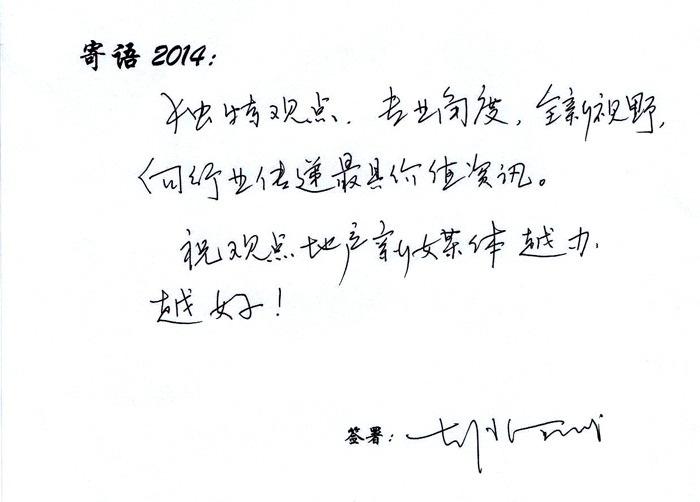 寄语 2014:
独特观点.专业角度,全新视野,
向行业传递最具价值资讯。
祝观点地产新媒体越办
越好!
签署: